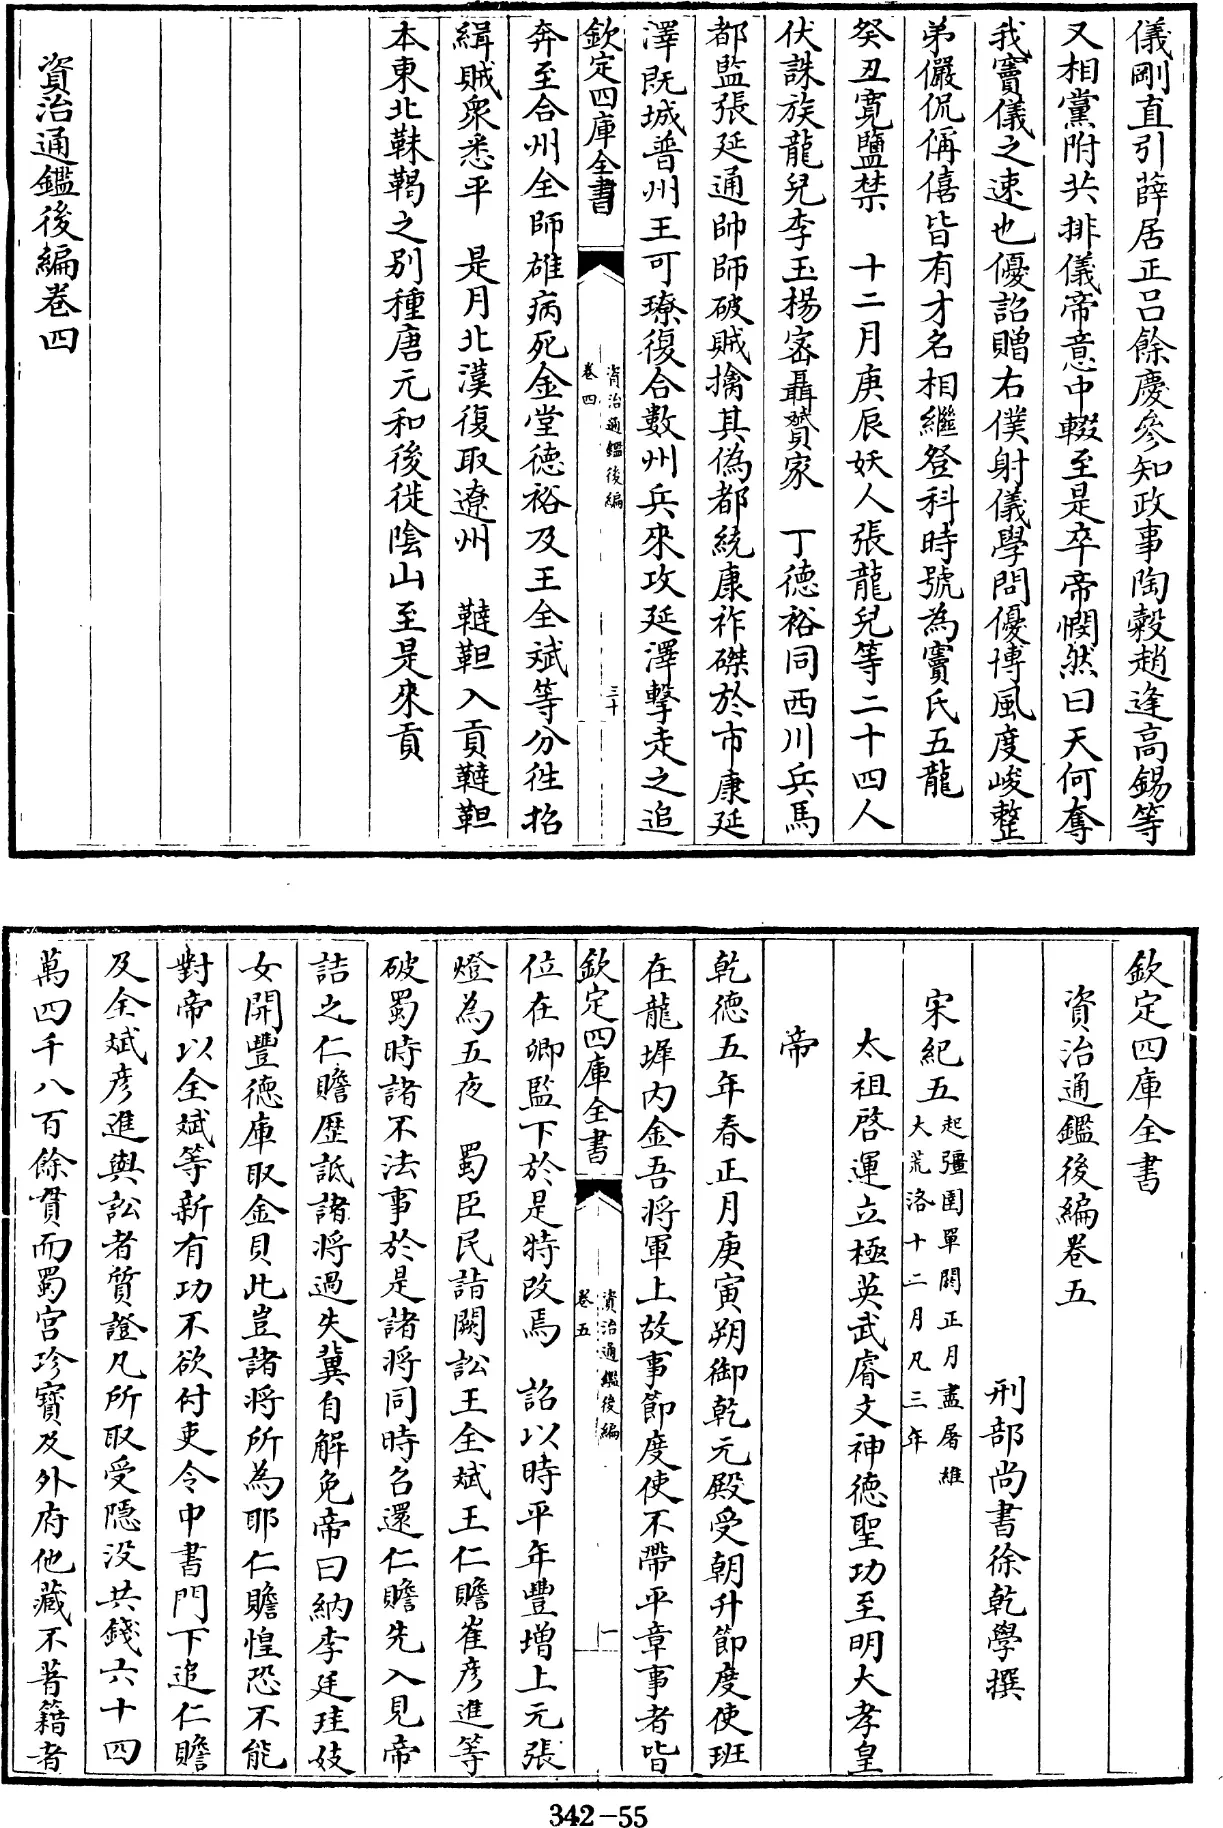 儀剛直引薛居正吕餘慶參知政事陶穀趙逢高錫等
又相黨附共排儀帝意中輟至是卒帝憫然曰天何奪
我竇儀之速也優詔贈右僕射儀學問優博風度峻整
弟儼侃偁僖皆有才名相繼登科時號為竇氏五龍
癸丑寛鹽禁　十二月庚辰妖人張龍兒等二十四人
伏誅族龍兒李玉楊密聶贇家　丁德裕同西川兵馬
都監張延通帥師破賊擒其偽都統康祚磔於市康延
澤既城普州王可璙復合數州兵來攻延澤擊走之追
欽定四庫全書
資治通鑑後編
卷四
三十
奔至合州全師雄病死金堂德裕及王全斌等分徃招
緝賊衆悉平　是月北漢復取遼州　韃靼入貢韃靼
本東北靺鞨之别種唐元和後徙陰山至是來貢
資治通鑑後編卷四
欽定四庫全書
資治通鑑後編卷五
刑部尚書徐乾學撰
宋紀五
起彊圉單閼正月盡屠維
大荒洛十二月凡三年
太祖啓運立極英武睿文神德聖功至明大孝皇
帝
乾德五年春正月庚寅朔御乾元殿受朝升節度使班
在龍墀内金吾將軍上故事節度使不帶平章事者皆
欽定四庫全書
資治通鑑後編
卷五
一
位在卿監下於是特改焉　詔以時平年豐增上元張
燈為五夜　蜀臣民詣闕訟王全斌王仁贍崔彦進等
破蜀時諸不法事於是諸將同時召還仁贍先入見帝
詰之仁贍歴詆諸將過失冀自解免帝曰納李廷珪妓
女開豐德庫取金貝此豈諸將所為耶仁贍惶恐不能
對帝以全斌等新有功不欲付吏令中書門下追仁贍
及全斌彦進與訟者質證凡所取受隠没共錢六十四
萬四千八百餘貫而蜀宫珍寳及外府他藏不著籍者
342-55